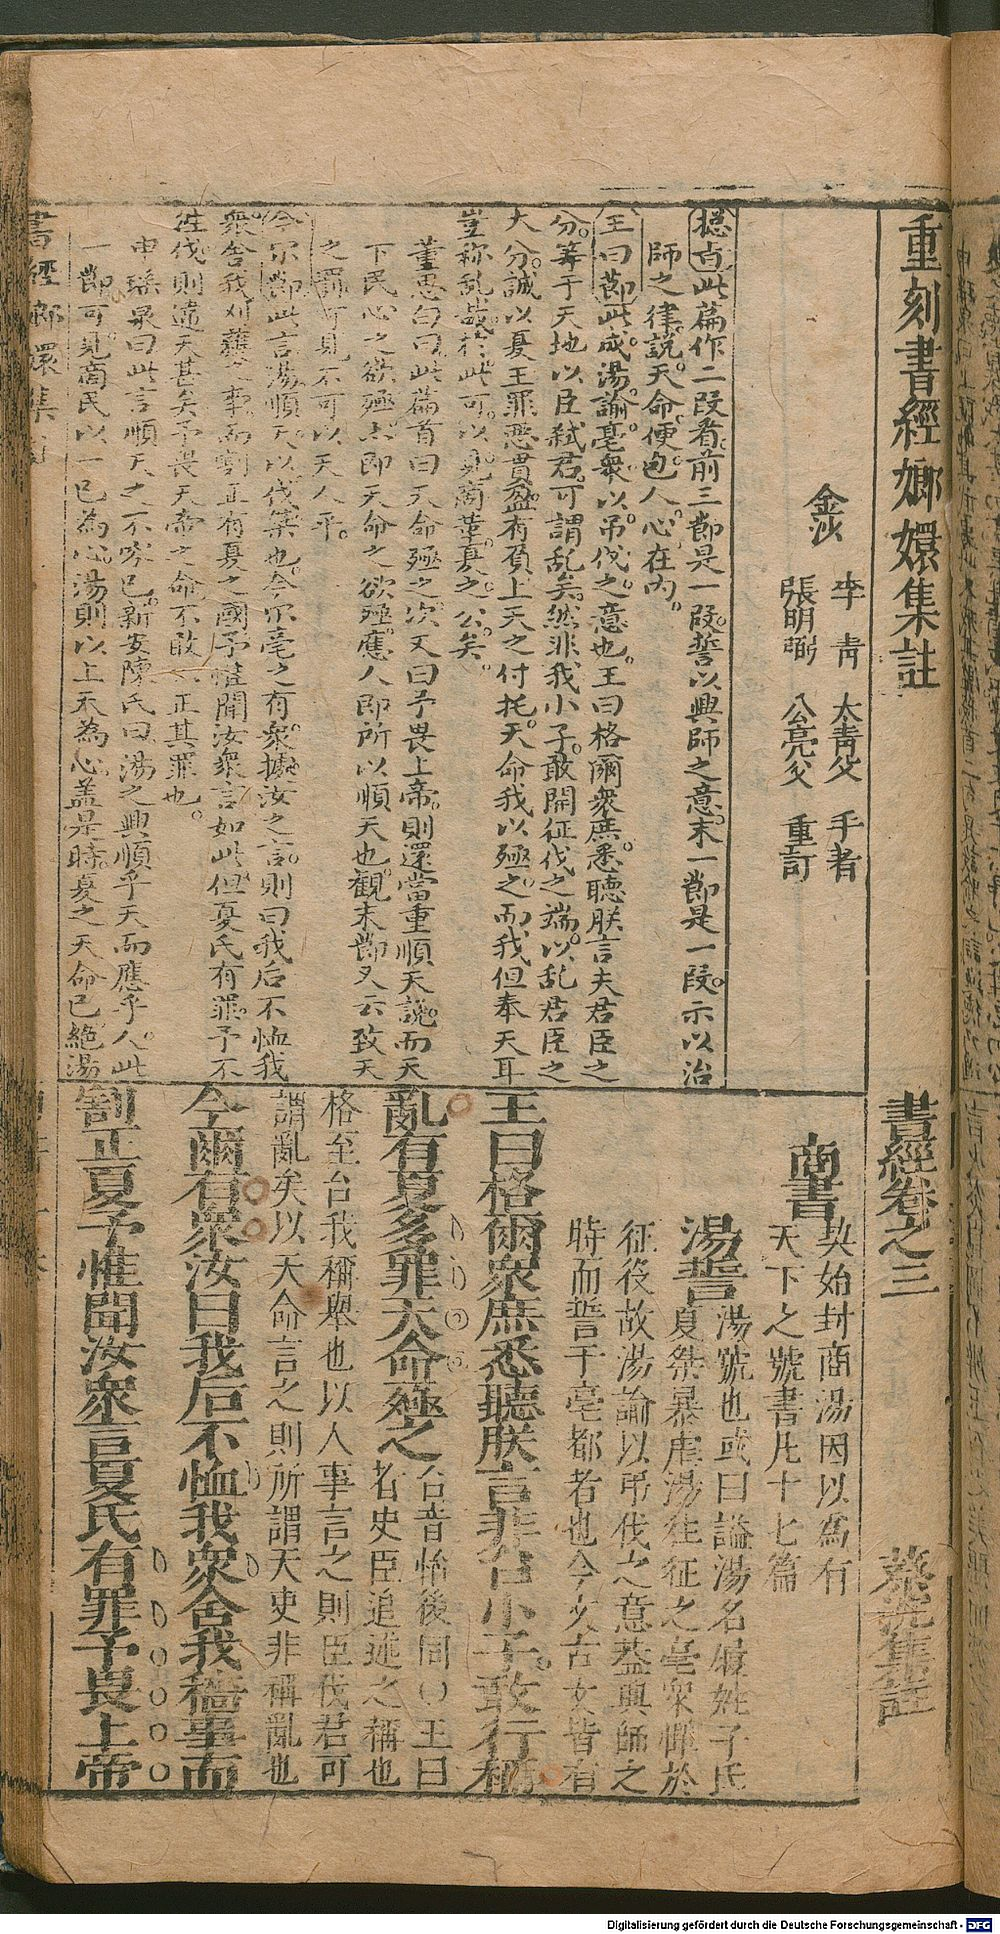 重刻書經嫏嬛集註
金沙
李青 太青父 手著
張明弼 公亮父 重訂
總旨此篇作二段看前三節是一段誓以興師之意末一節是一段示以治
師之律說天命便包人心在內
王曰節此成湯諭亳眾以吊伐之意也王曰格爾眾庶悉聽朕言夫君臣之
分等于天地以臣弒君可謂乱矣然非我小子敢開征伐之端以乱君臣之
大分誠以夏王罪惡貫盈有負上天之付托天命我以殛之而我但奉天耳
豈称乱哉於此可以見商革夏之公矣
董思白曰此篇首曰天命殛之次又曰予畏上帝則還當重順天說而天
下民心之欲殛亦即天命之欲殛應人即所以順天也觀末節又云致天
之罰可見不可以天人平
今尔節此言湯順天以伐桀也今尔亳之有眾據汝之言則曰我后不恤我
眾舍我刈穫之事而割正有夏之國予惟聞汝眾言如此但夏氏有罪予不
往伐則違天甚矣予畏天帝之命不敢不正其罪也
申瑤泉曰此言順天之不容已新安陳氏曰湯之興順乎天而應乎人此
一節可見商民以一已為心湯則以上天為心盖是時夏之天命已絕湯
書經卷之三
蔡沈集註
商書
契始封商湯因以為有
天下之號書凡十七篇
湯誓
湯號也或曰謚湯名履姓子氏
夏桀暴虐湯往征之亳眾憚於
征役故湯諭以吊伐之意蓋興師之
時而誓于亳都者也今文古文皆有
王曰格爾眾庶悉聽朕言非台小子敢行稱
亂有夏多罪天命殛之
台音怡後同○王曰
者史臣追述之稱也
格至台我稱舉也以人事言之則臣伐君可
謂亂矣以天命言之則所謂天吏非稱亂也
今爾有眾汝曰我后不恤我眾舍我穡事而
割正夏予惟聞汝眾言夏氏有罪予畏上帝
書經嫏嬛集
Digitalisierung gefördert durch die Deutsche Forschungsgemeinschaft - DFG